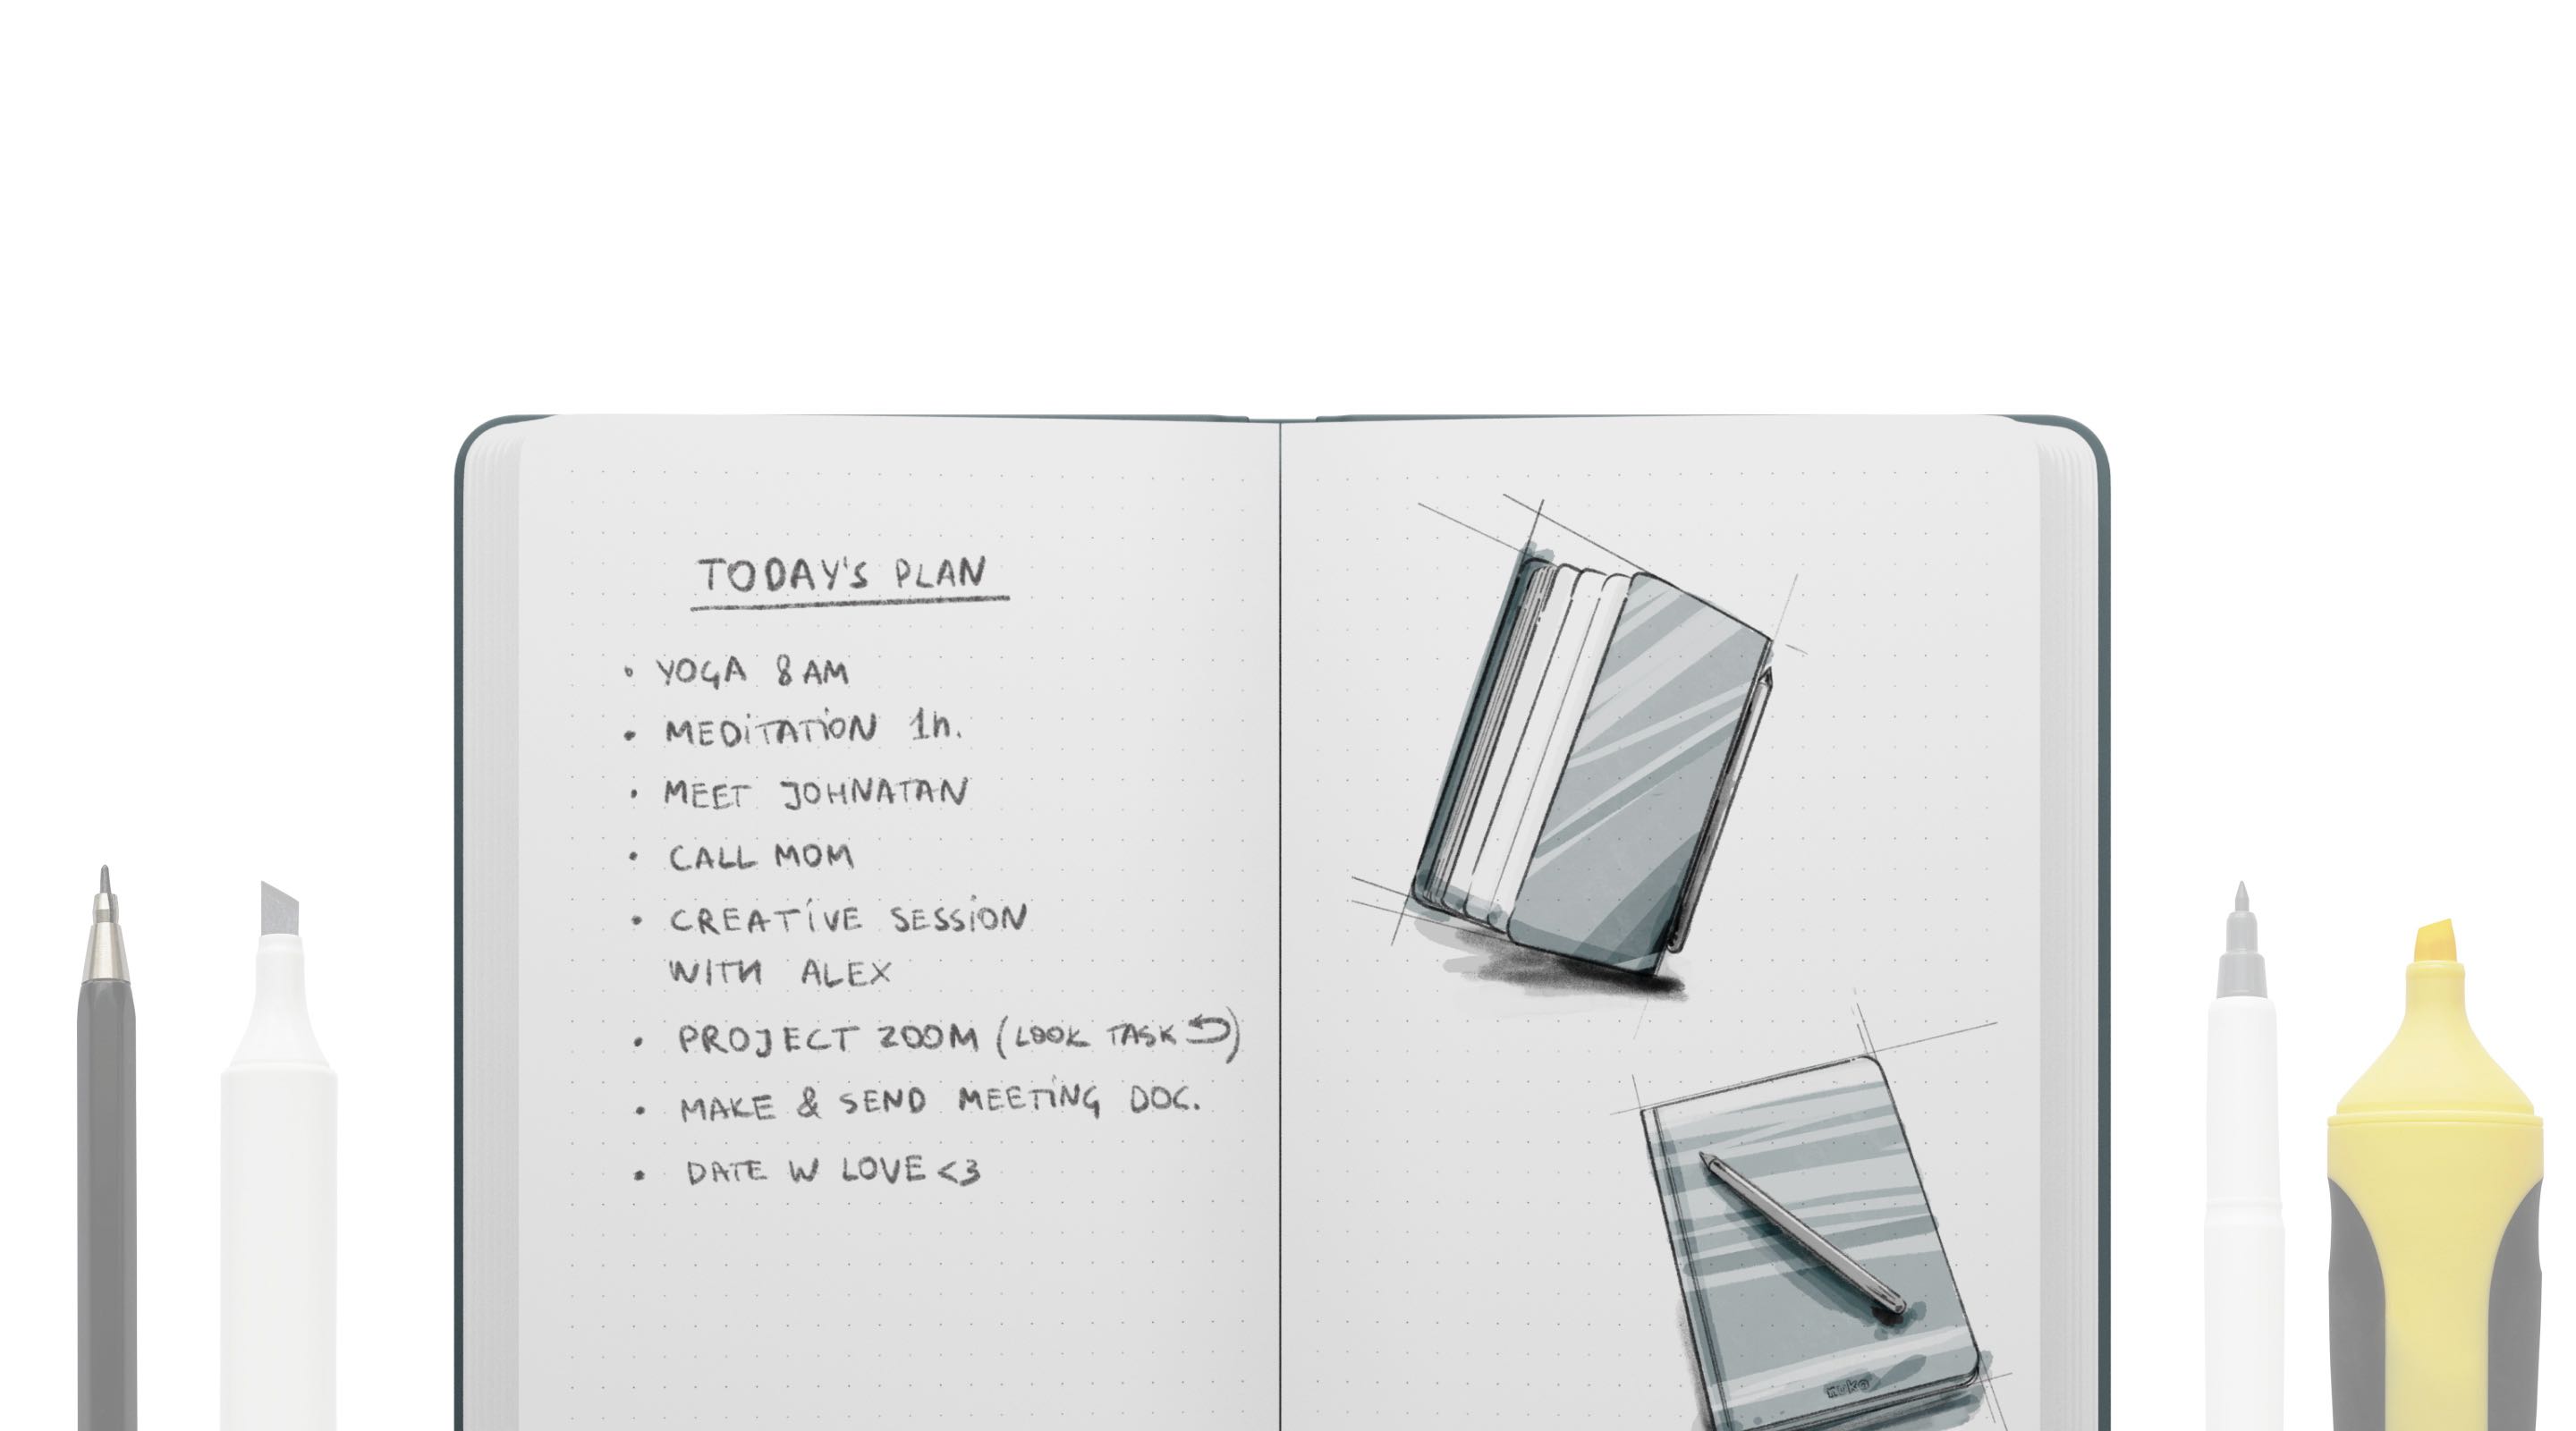 TODAY'S PLAN
• YOGA 8 AM
• MEDiTATiON 1h.
• MEET JOHNATAN
• CALL MOM
• CREATiVE SESSiON
WITH ALEX
• PROJECT ZOOM (LOOK TASK ⮌)
• MAKE & SEND MEETiNG DOC.
• DATE W LOVE <3
nuko